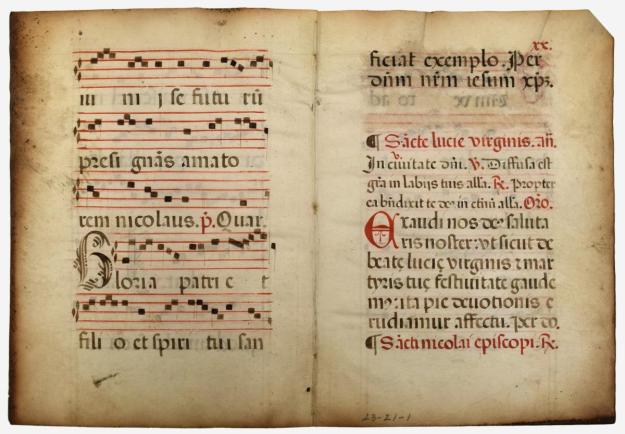 iu ni j se futu rū
presi gnās amato
rem nicolaus. p̄. Quar
Gloria patri e t
fili o et spiri tui san
xx.
ficiat exemplo. Per
dn̄m nr̄m iesum xp̄z.
¶ S. ācte lucie virginis. an̄.
In ciuitate dn̄i. v. Diffusa est
gr̄a in labijs tuis all̄a. R. Propter
ea bn̄dixit te de' in etnū all̄a. Or̄o.
Exaudi nos de' saluta
ris noster: vt sicut de
beate lucię virginis z mar
tyris tuę festiuitate gaude
mus: ita pie deuotionis e
rudiamur affectu. Per eo.
¶ S. ācti nicolai episcopi. R.
23-21-1